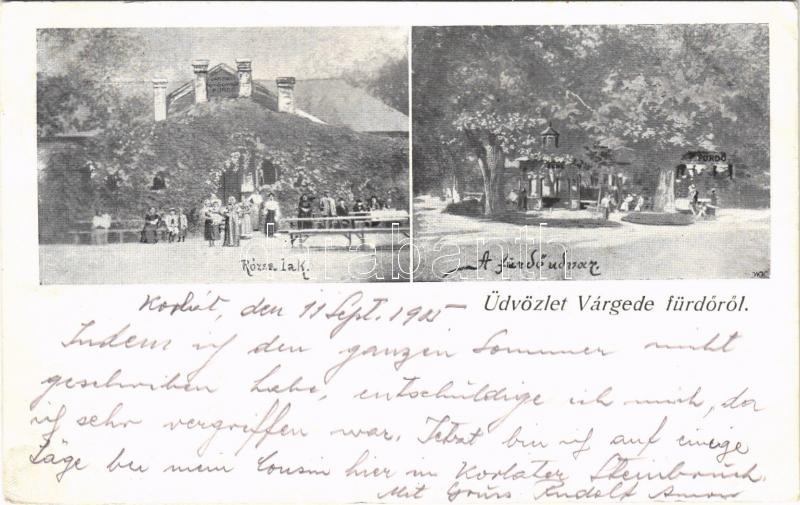 FÜRDŐ
Rózsa lak.
A fürdő udvar
Üdvözlet Várgede fürdőről.
Korlát, den 11 Sept. 1905
Indem ich den ganzen Sommer nicht
geschrieben habe, entschüldige ich mich, da
ich sehr vergriffen war. Jetzt bin ich auf einige
Täge bei mein Cousin hier in Korlater Steinbruch.
Mit Gruss Rudolf
darabanth